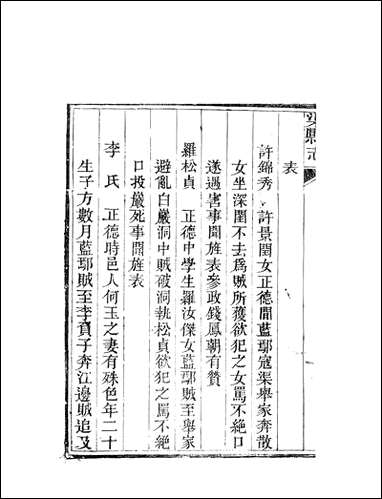 表
許錦秀 許景閏女正德間藍鄢寇渠舉家奔散
女坐深閨不去爲賊所獲欲犯之女罵不絶口
遂遇害事聞旌表參政錢鳳朝有贊
羅松貞 正德中學生羅汝傑女藍鄢賊至舉家
避亂白巖洞中賊破洞執松貞欲犯之罵不絶
口投巖死事聞旌表
李氏 正德時邑人何玉之妻有殊色年二十
生子方數月藍鄢賊至李負子奔江邊賊追及